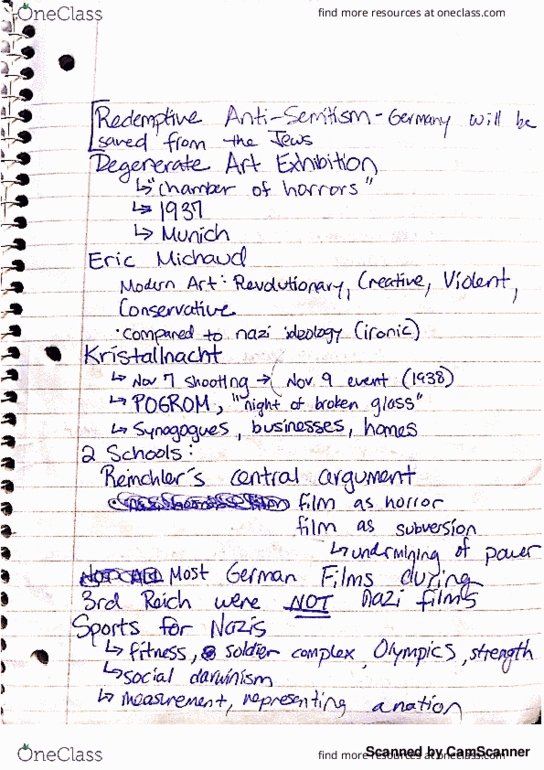 OneClass
find more resources at oneclass.com
Redemptive Anti-Semitism - Germany will be
saved from the Jews
Degenerate Art Exhibition
↳ "chamber of horrors"
↳ 1937
↳ Munich
Eric Michaud
Modern Art: Revolutionary, Creative, Violent,
Conservative
· Compared to nazi ideology (ironic)
Kristallnacht
↳ Nov 7 shooting → Nov 9 event (1938)
↳ POGROM, "night of broken glass"
↳ Synagogues, businesses, homes
2 Schools:
Reinchler's central argument
film as horror
film as subversion
↳ undermining of power
Most German Films during
3rd Reich were NOT nazi films
Sports for Nazis
↳ fitness, soldier complex, Olympics, strength
↳ social darwinism
↳ measurement, representing a nation
OneClass
find more resources at oneclass.com
Scanned by CamScanner